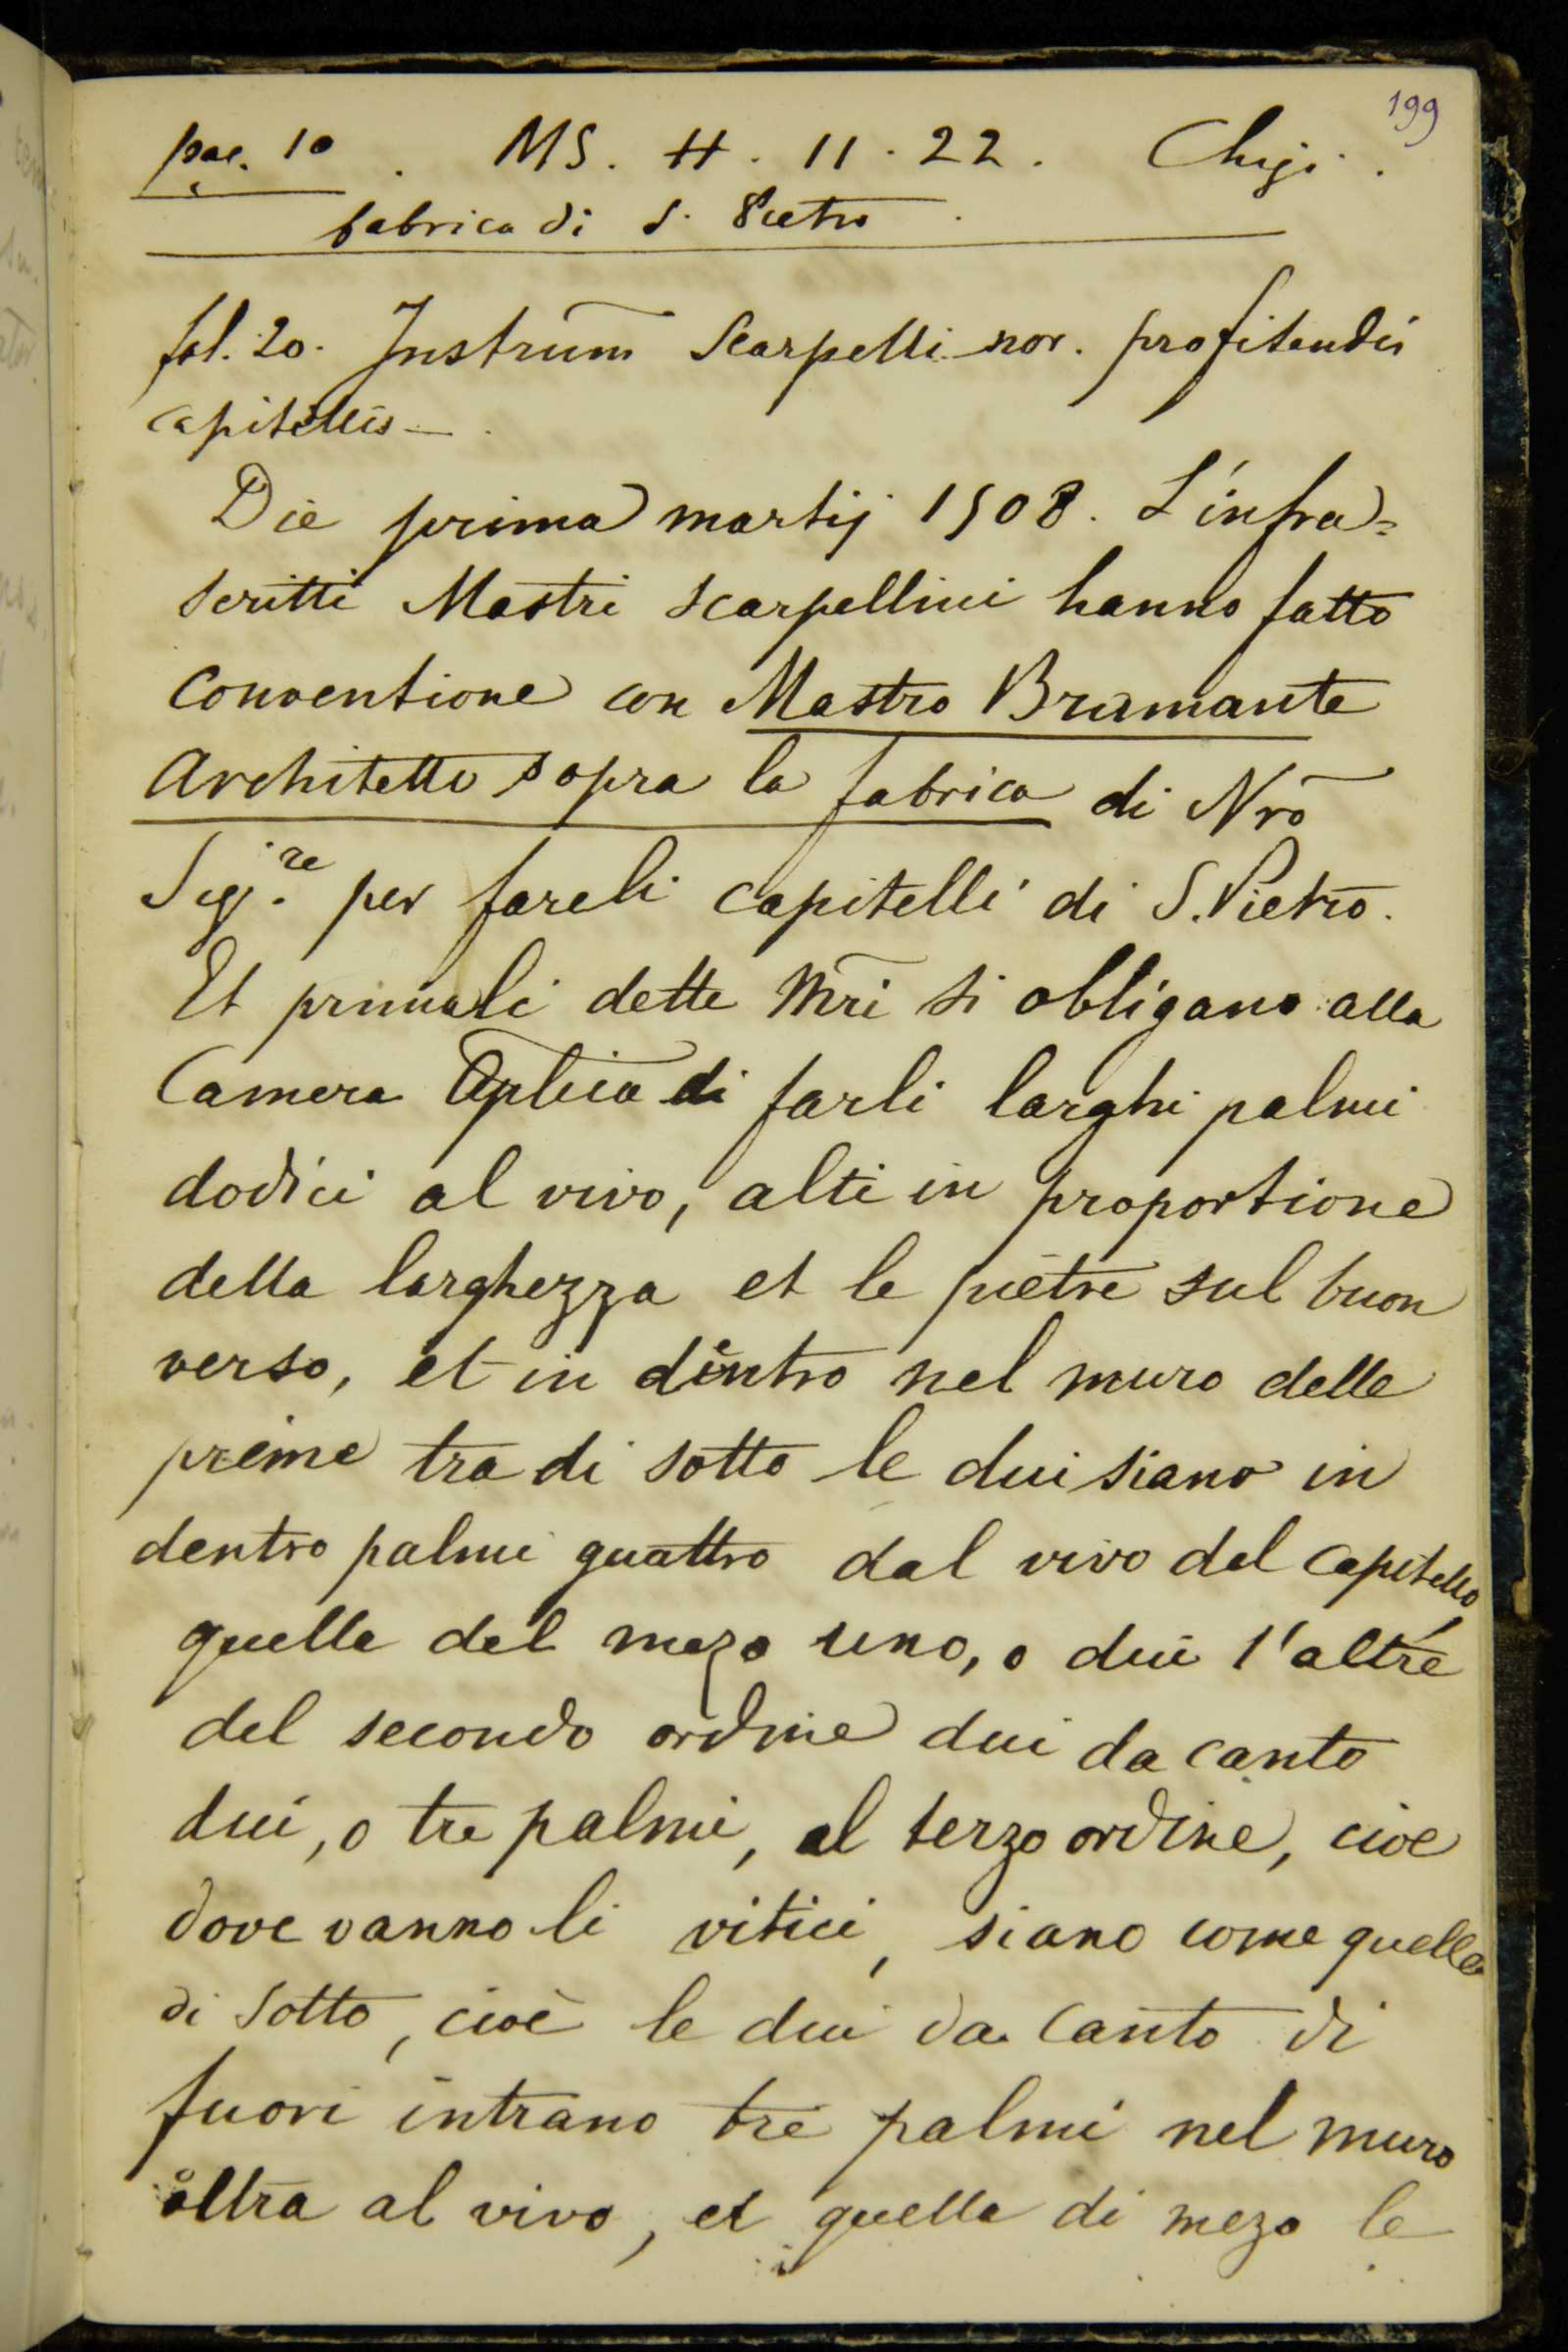 199
pac. 10 . MS. H. 11. 22. Chigi.
fabrica di S. Pietro.
fol. 20. Instrum̄ Scarpellinor. profitendis
capitellis —.
Die prima martij 1508. L'infra=
scritti Mastri scarpellini hanno fatto
conventione con Mastro Bramante
Architetto sopra la fabrica di Nrō
Sig.re per fareli capitelli di S. Pietro.
Et primali dette Mr̄i si obligano alla
Camera Ap̄lica di farli larghi palmi
dodici al vivo, alti in proportione
della larghezza et le pietre sul buon
verso, et in dentro nel muro delle
prime tra di sotto le dui siano in
dentro palmi quattro dal vivo del capitello,
quelle del mezo uno, o dui l'altre
del secondo ordine dui da canto
dui, o tre palmi, al terzo ordine, cioe
dove vanno li vitici, siano come quelle
di sotto, cioè le dui da canto di
fuori intrano tre palmi nel muro
oltra al vivo, et quelle di mezo le